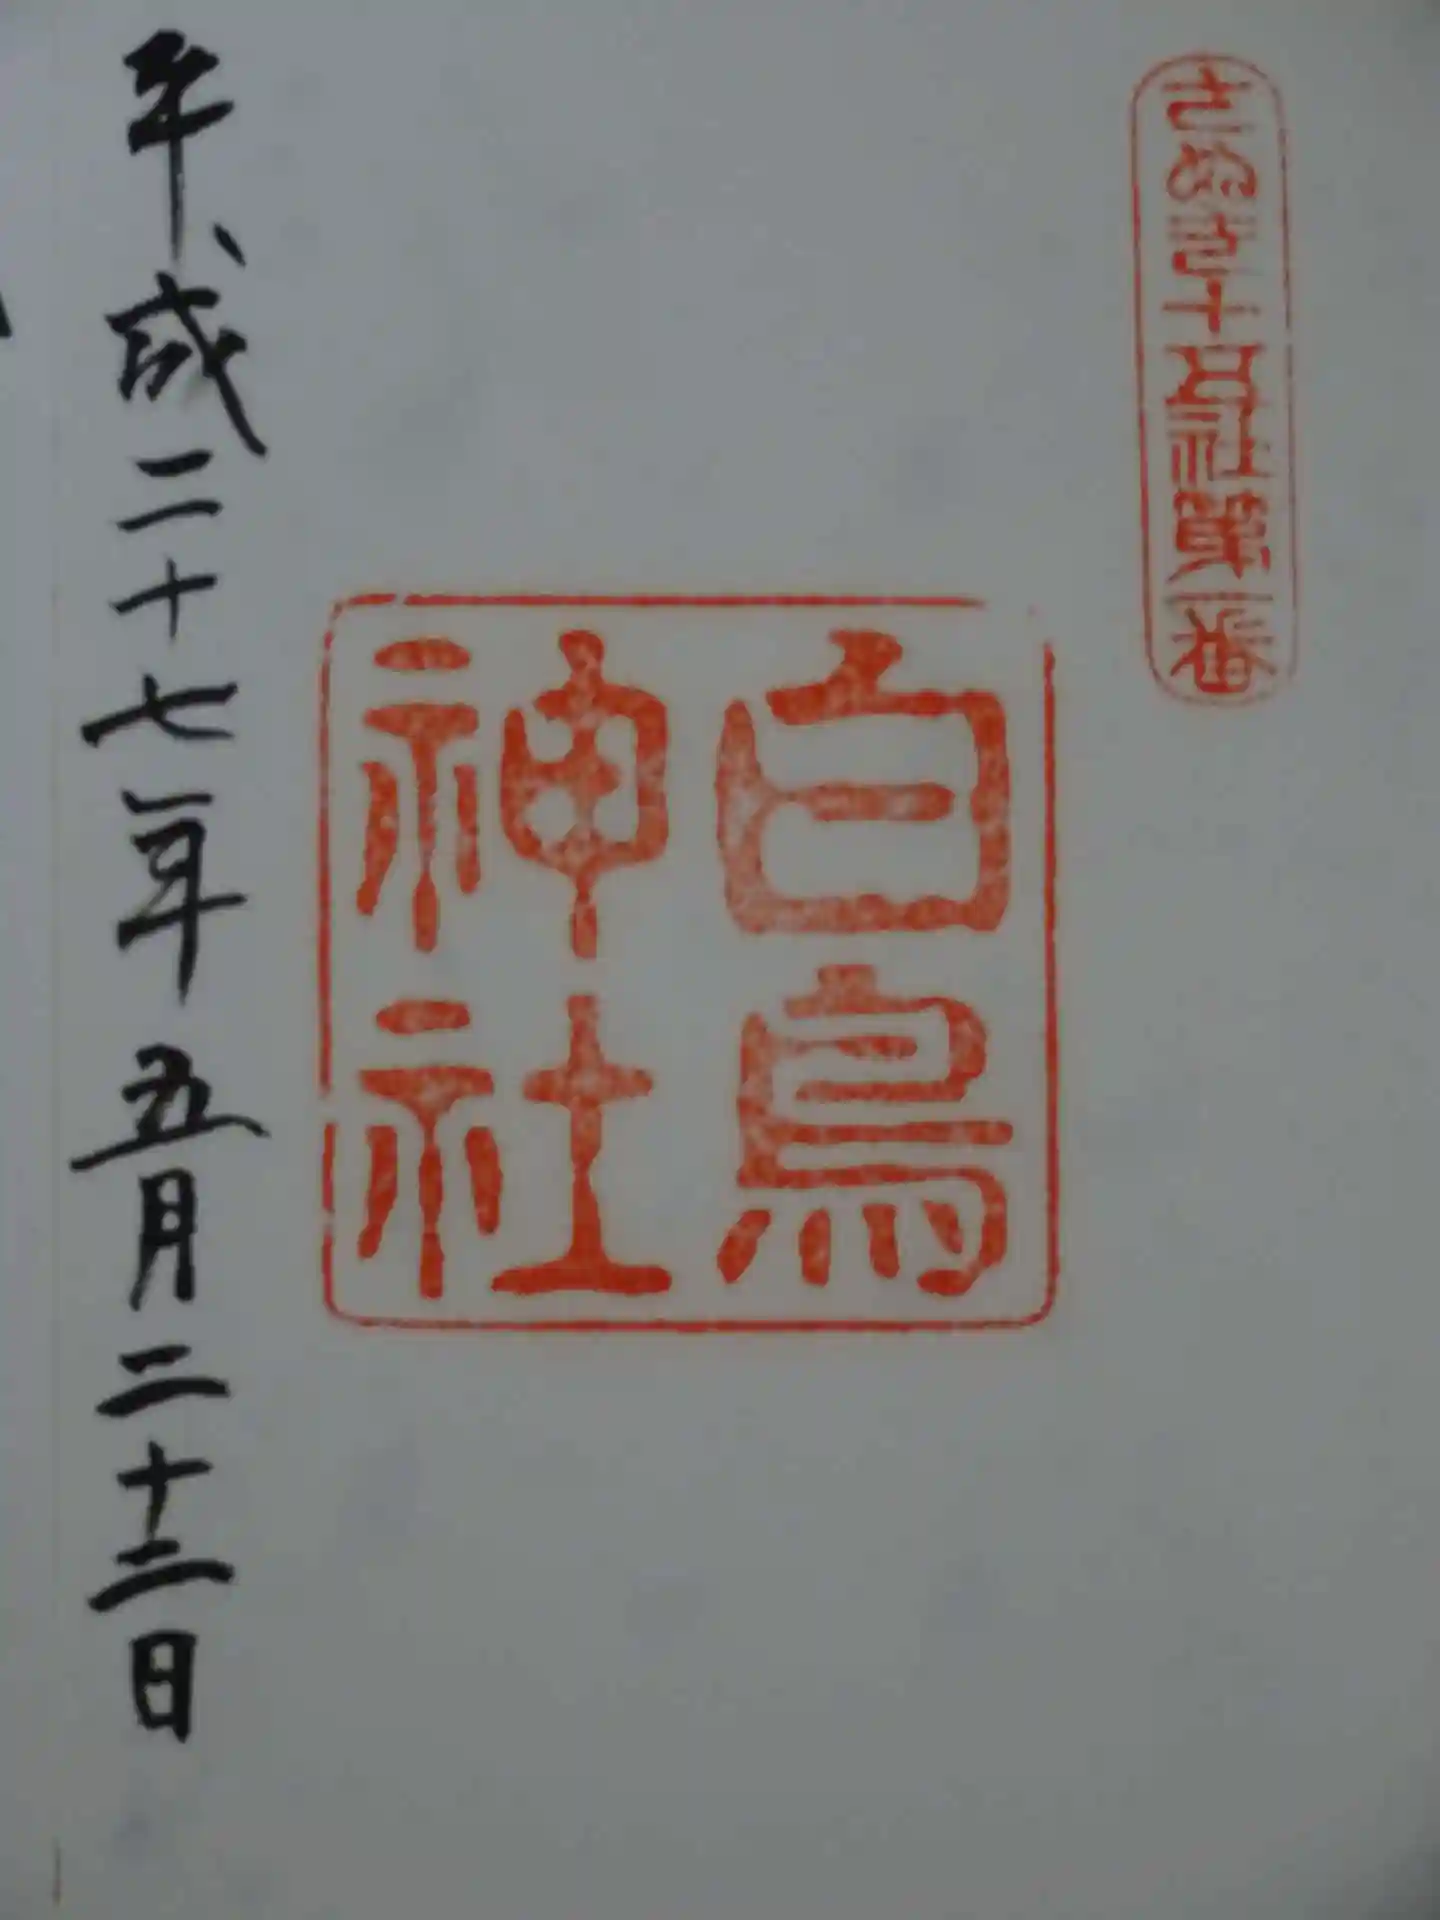 さぬき十五社第一番
白鳥
神社
平成二十七年五月二十二日